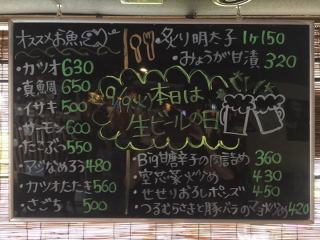 オススメお魚
・カツオ 630
・真鯛 650
・イサキ 500
・サーモン 600
・たこぶつ 550
・アジなめろう 480
・カツオたたき 560
・さごち 500
・炙り明太子 1ケ150
・みょうが甘漬 320
本日は
生ビールの日
・Big甘唐辛子の肉詰め 360
・空芯菜炒め 430
・せせりおろしポンズ 450
・つるむらさきと豚バラのマヨ炒め 420